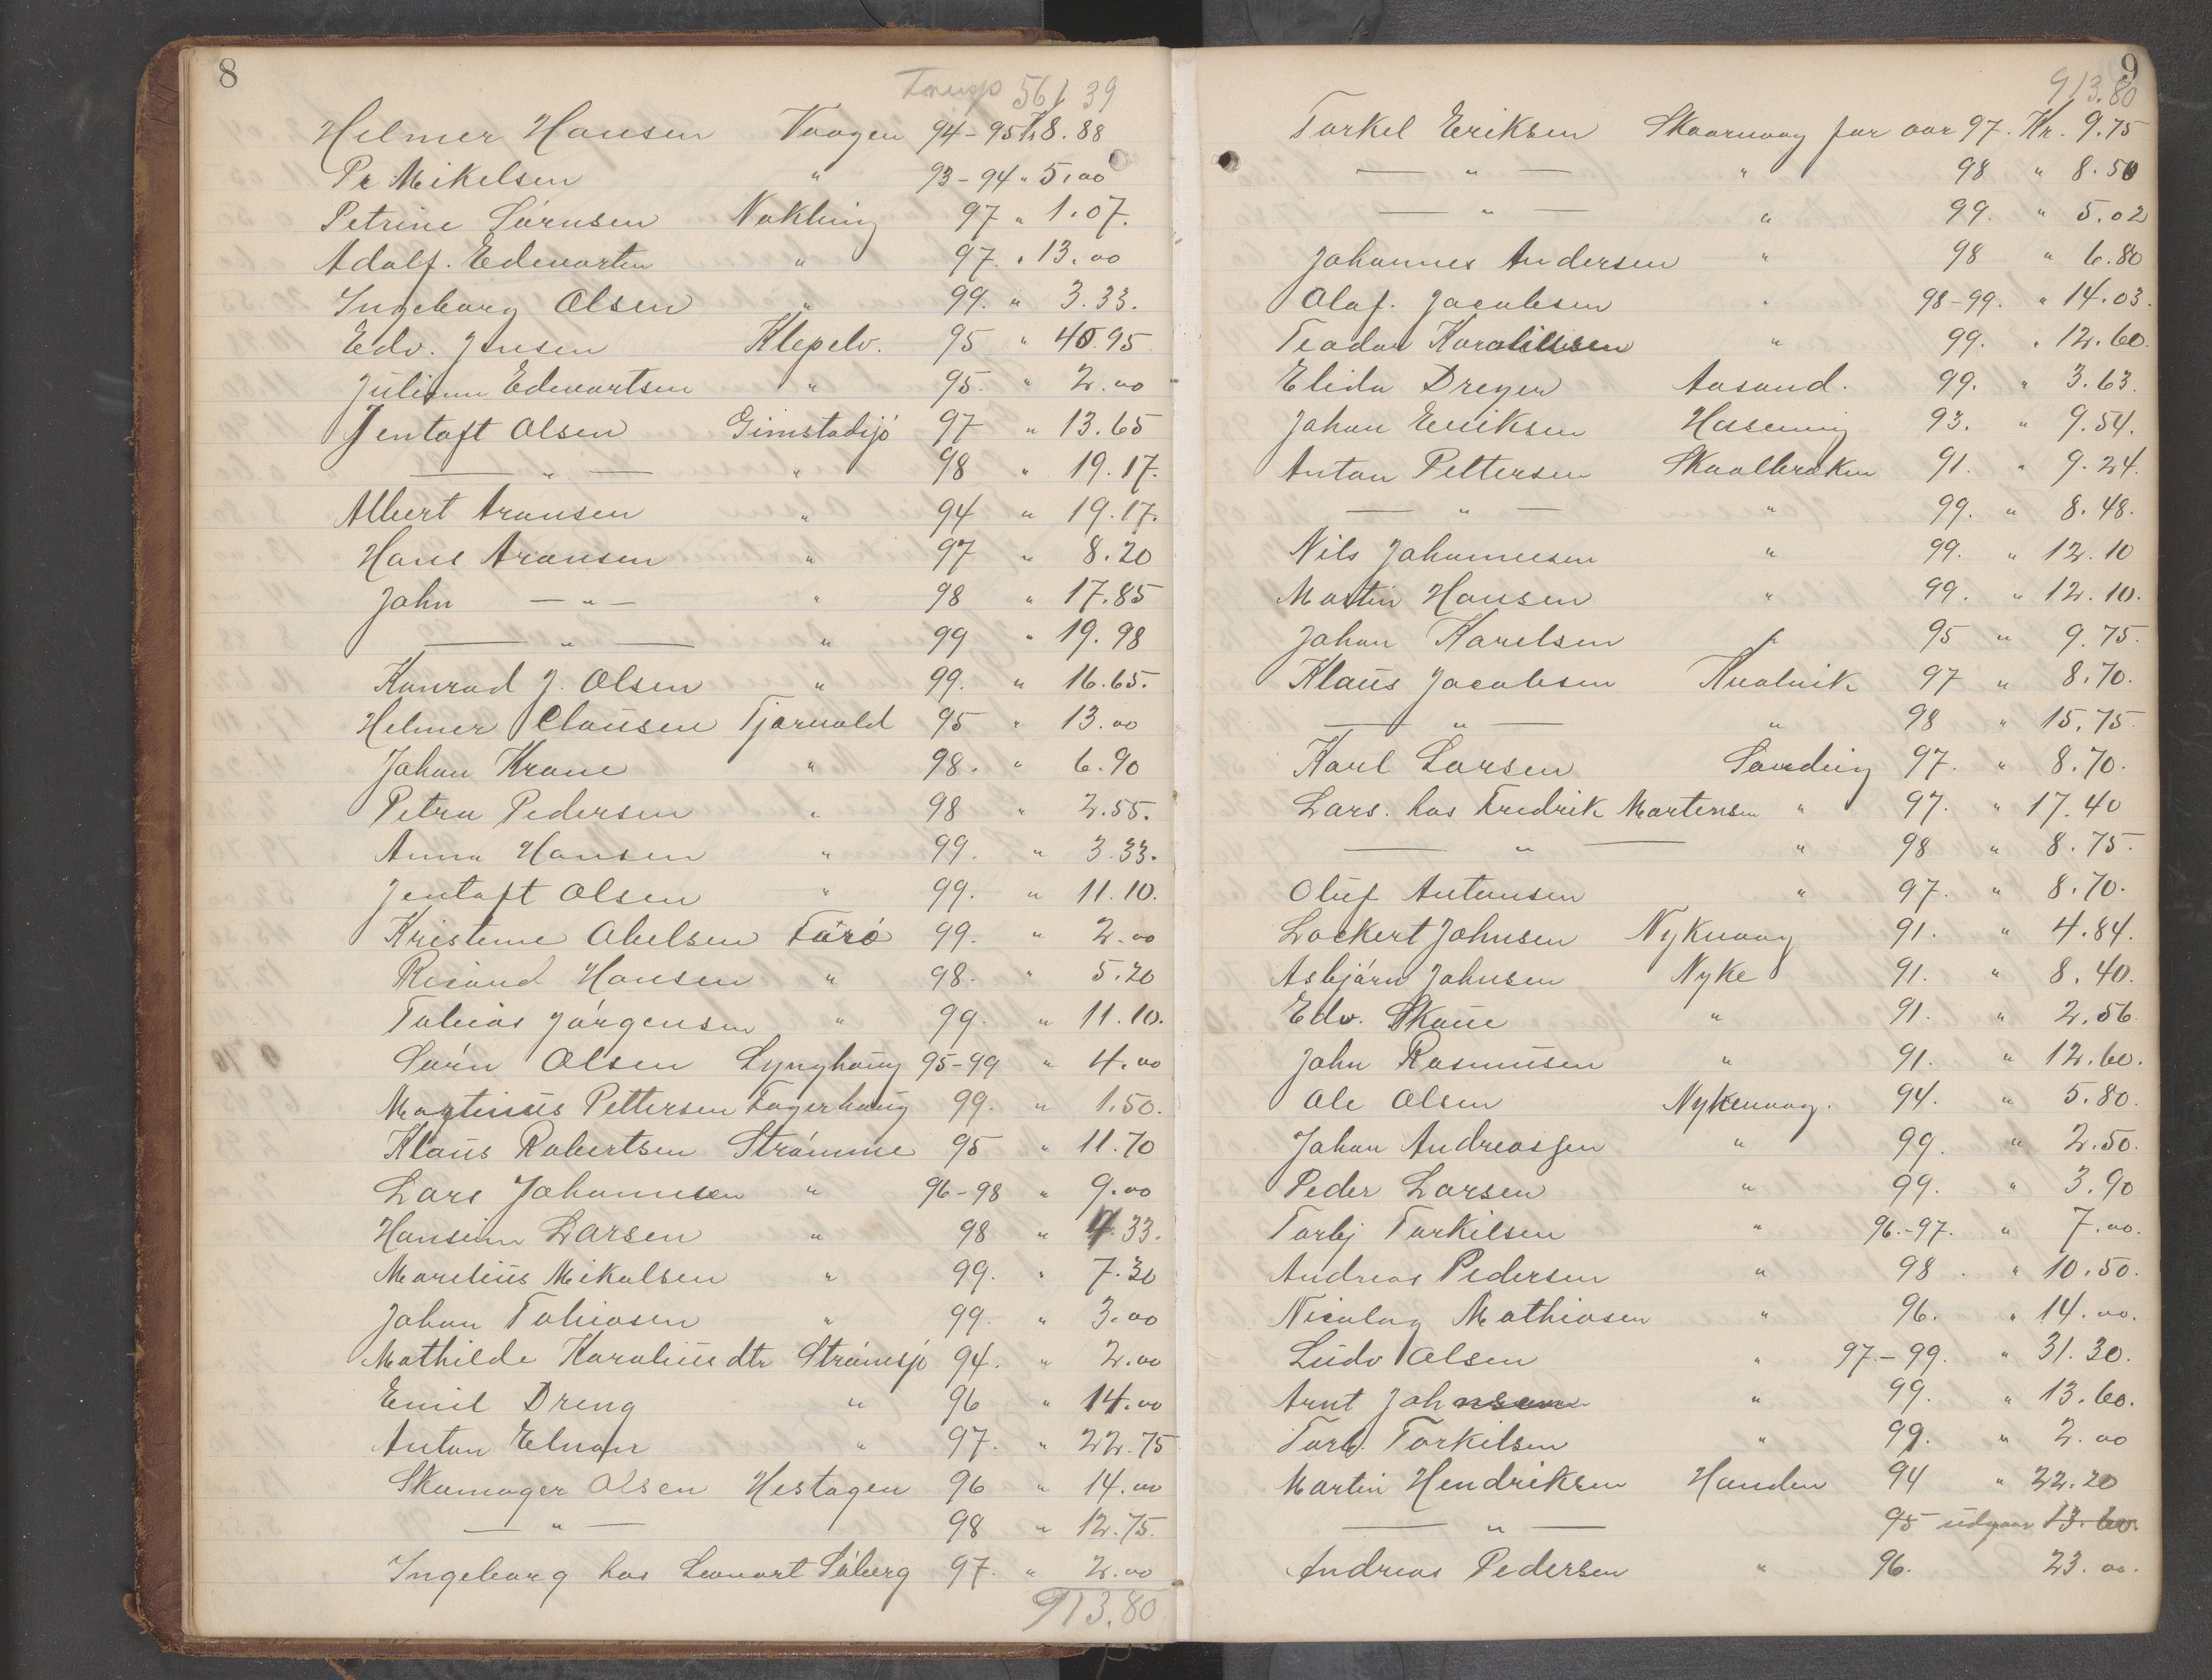 8
Transp 561 39
Helmer Hansen Vaagen 94-95 Kr 8.88
Pr Mikelsen " 93-94 " 5.00
Petrine Sörnsen Nakling 97 " 1.07.
Adolf. Edevartsen " 97. " 13.00
Ingeborg Olsen " 99. " 3.33.
Edv. Jensen Klepelv. 95 " 40.95
Juliann Edevartsen " 95. " 2.00
Jentoft Olsen Gimstadsjö 97 " 13.65
— " — " 98 " 19.17.
Albert Aronsen " 94 " 19.17.
Hans Aronsen " 97 " 8.20
John — " — " 98 " 17.85
— " — " 99 " 19.98
Konrad J. Olsen " 99. " 16.65.
Helmer Clausen Tjarnvold 95 " 13.00
Johan Krane " 98. " 6.90
Petra Pedersen " 98 " 2.55.
Anna Hansen " 99. " 3.33.
Jentoft Olsen " 99. " 11.10.
Kristine Abelsen Farö 99. " 2.00
Rirand Hansen " 98. " 5.20
Tobias Jörgensen " 99. " 11.10.
Sörn Olsen Lynghaug 95-99 " 4.00
Martinus Pettersen Fagerhaug 99. " 1.50.
Klaus Robertsen Strömme 95 " 11.70
Lars Johannesen " 96-98 " 9.00
Hansine Larsen " 98 " 4.33.
Marelius Mikalsen " 99. " 7.30
Johan Tobiasen " 99. " 3.00
Mathilde Karoliusdtr Strömsjö 94. " 2.00
Emil Dreng " 96 " 14.00
Anton Elnan " 97. " 22.75
Skamager Olsen Hestagen 96 " 14.00
— " — 98 " 12.75.
Ingeborg hos Leonart Söberg 97. " 2.00
913.80
9
913.80
Torkel Eriksen Skaarvaag for aar 97. Kr. 9.75
— " — " 98 " 8.50
— " — " 99. " 5.02
Johannes Andersen " 98 " 6.80
Olaf. Jacobsen " 98-99. " 14.03.
Teodor Karoliusen " 99. " 12.60.
Elida Dreyer Aasand. 99. " 3.63.
Johan Eeriksen Hasseniog 93. " 9.54.
Anton Pettersen Skaalbraken 91. " 9.24.
— " — " 99. " 8.48.
Nils Johannesen " 99. " 12.10
Martin Hansen " 99. " 12.10.
Johan Karelsen " 95 " 9.75.
Klaus Jacobsen Kvalvik 97 " 8.70.
— " — " 98 " 15.75.
Karl Larsen Sanding 97. " 8.70.
Lars. hos Fredrik Martensen " 97. " 17.40
— " — " 98 " 8.75.
Oluf Antonsen " 97. " 8.70.
Lockert Johnsen Nykvaag 91. " 4.84.
Asbjörn Johnsen Nyke 91. " 8.40.
Edv. Skaue " 91. " 2.56
John Rasmusen " 91. " 12.60.
Ole Olsen Nykenvaag. 94. " 5.80.
Johan Andreassen " 99. " 2.50.
Peder Larsen " 99. " 3.90
Torbj Torkilsen " 96.-97. " 7.00.
Andreas Pedersen " 98. " 10.50.
Nicolay Mathiasen " 96. " 14.00.
Ludv Olsen " 97.-99. " 31.30.
Arnt Johnsen " 99. " 13.60.
Torb. Torkilsen " 99. " 2.00
Martin Hendriksen Handen 94 " 22.20
— " — 95 udgaar 13.60.
Andreas Pedersen " 96. 23.00.